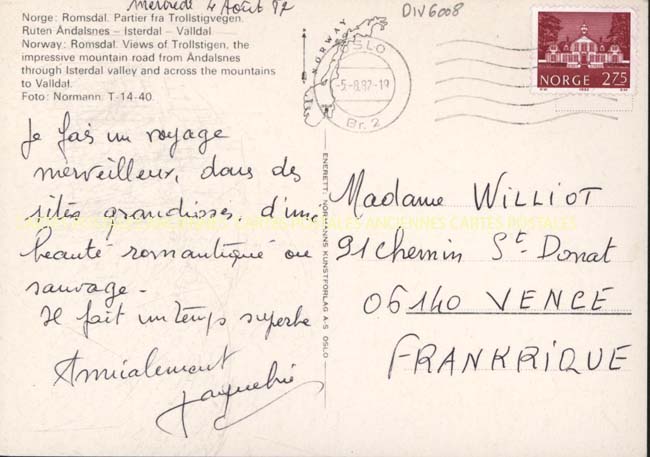 Mercredi 4 Août 82
DIV6008
Norge: Romsdal. Partier fra Trollstigvegen.
Ruten Åndalsnes – Isterdal – Valldal.
Norway: Romsdal. Views of Trollstigen, the
impressive mountain road from Åndalsnes
through Isterdal valley and across the mountains
to Valldal.
Foto: Normann. T-14-40.
NORWAY
OSLO
-5.-8.82.-19
Br. 2
NORGE 275
Je fais un voyage
merveilleux, dans des
sites grandioses, d'une
beauté romantique ou
sauvage -
Il fait un temps superbe
Amicalement
Jacqueline
ENERETT: NORMANNS KUNSTFORLAG A-S OSLO
Madame WILLIOT
91 Chemin St Donat
06140 VENCE
FRANKRIQUE
CARTES POSTALES ANCIENNES CARTES POSTALES